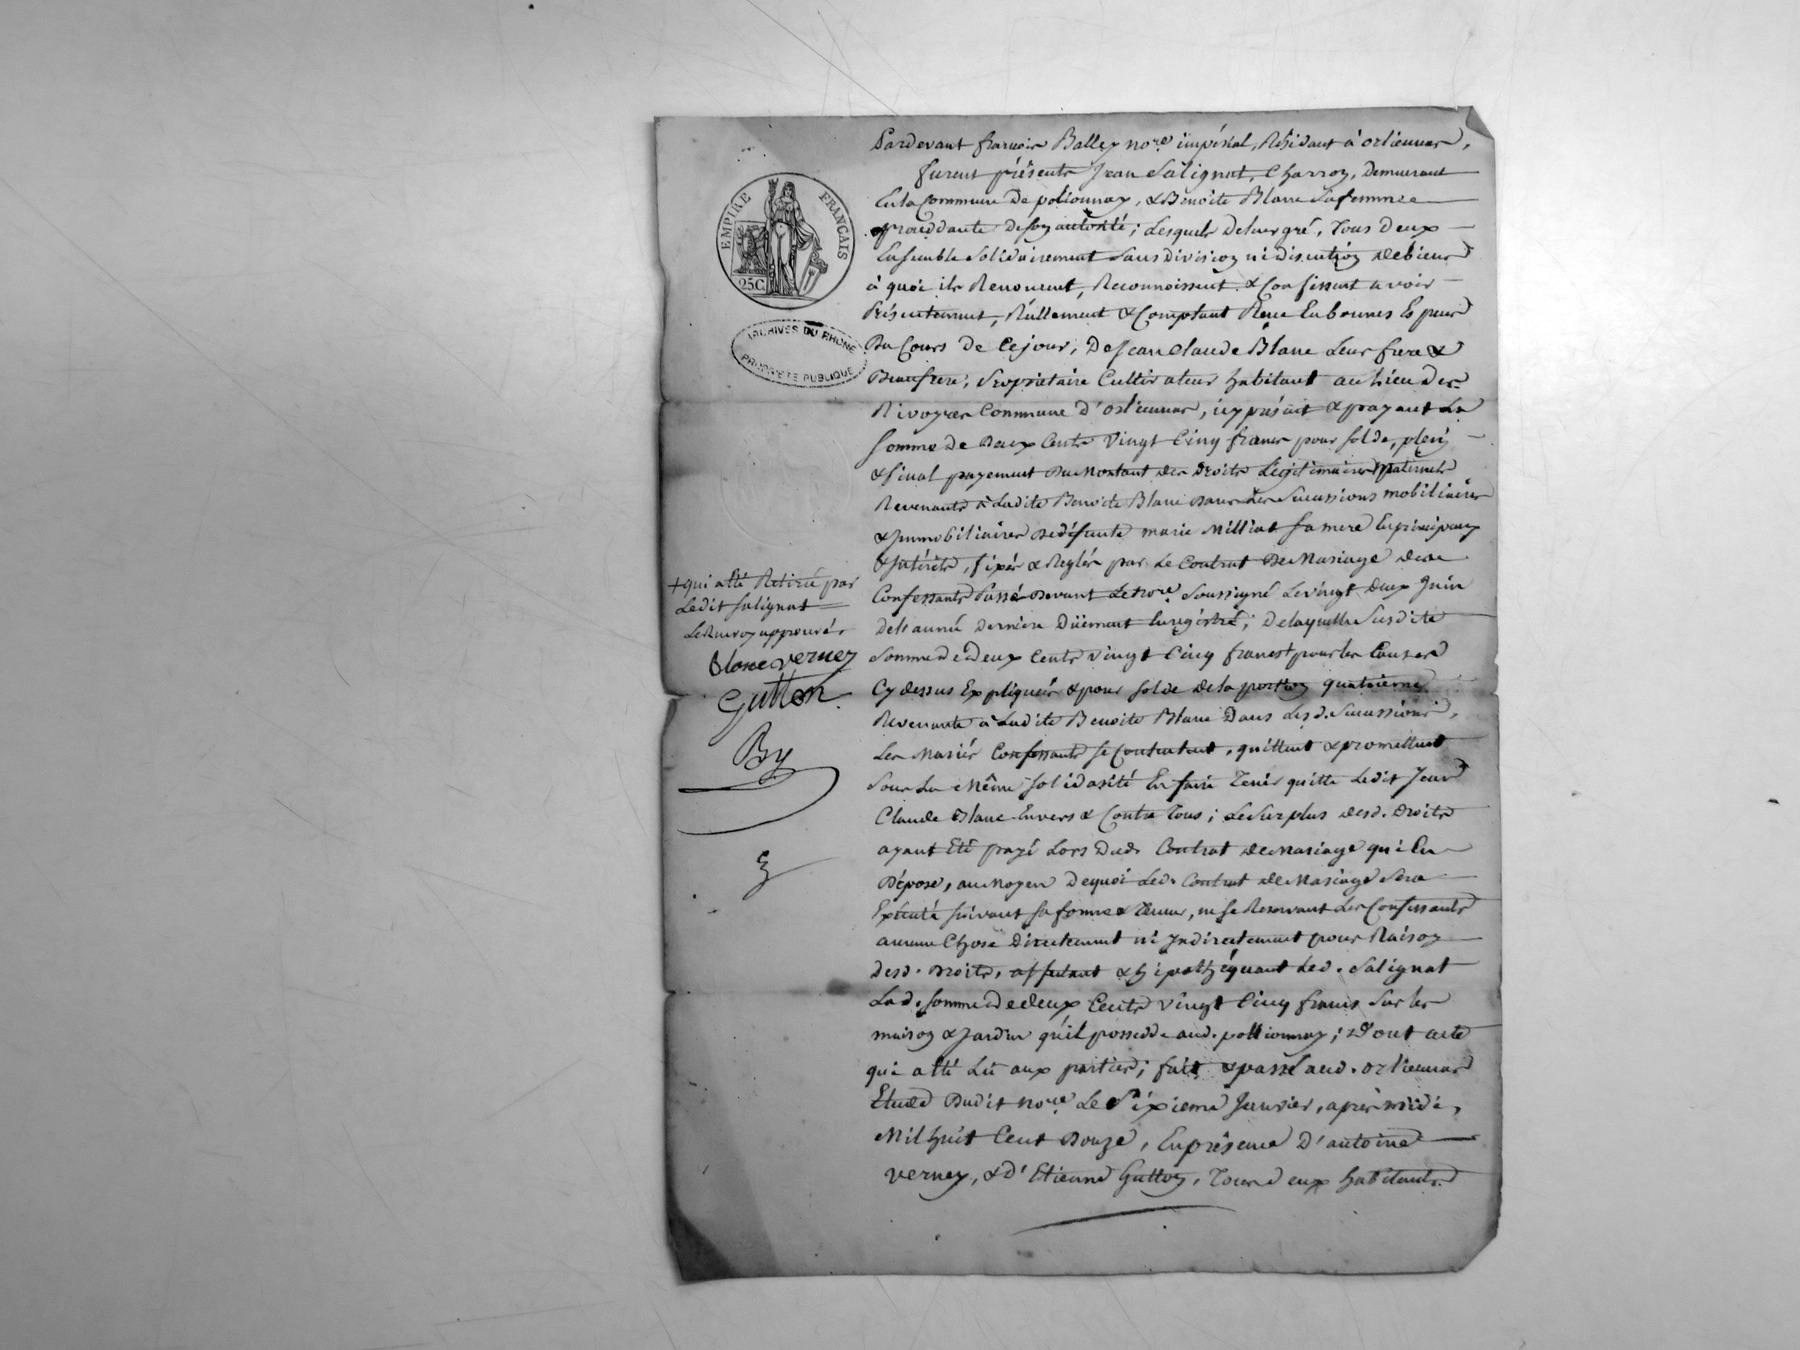 EMPIRE FRANÇAIS
25C.
ARCHIVES DU RHÔNE
PROPRIÉTÉ PUBLIQUE
Pardevant françois Balley no.re impérial, Résidant à orliennas,
furent présents Jean Salignat, Charron, demeurant
En la Commune De pollionnay, & Benoite Blanc Sa femme
procédante de son autorité; Lesquels de leur gré, Tous deux
Ensemble Solidairement Sans division ni discution de biens
à quoi ils Renoncent, Reconnoissent & Confessent avoir
Présentement, Réellement & Comptant Reçu En bonnes Especes
Du Cours de Cejour, De Jean Claude Blanc Leur frere &
Beaufrere, Propriétaire Cultivateur habitant au Lieu des
Rivoyres Commune d'orliennas, icy présent & payant La
Somme de Deux Cents Vingt Cinq francs pour solde, plein
& final payement Du Montant des Droits Légitimaires paternels
Revenants à Ladite Benoite Blanc dans Les Sucussions mobiliaires
& Immobiliaires De défunte marie Milliat sa mere En principaux
& Intérêts, fixés & Réglés par Le Contrat De Mariage des
Confessants Passé Devant Le no.re Soussigné Le vingt deux Juin
de l'année derniere Düement Enregistré; De laquelle Susdite
Somme de deux Cents vingt Cinq francs + pour les Causes
Cy dessus Expliquées & pour solde de la portion quatrieme
Revenante à Ladite Benoite Blanc Dans Lesd. Sucussions,
Les Mariés Confessants se Contentent, quittent & promettent
Sous La Même solidarité En faire Tenir quitte Ledit Jean
Claude Blanc Envers & Contre Tous; Le Surplus desd. Droits
ayant Eté payé Lors Dud. Contrat de Mariage qui En
Dépose, au Moyen De quoi Led. Contrat de Mariage Sera
Exécuté suivant sa forme & Teneur, ne se Reservant Les Confessants
aucune Chose Directement ni Indirectement pour Raison
desd. Droits, affectant & hipothéquant Led. Salignat
Lad. Somme de deux Cents vingt Cinq francs Sur les
maison & Jardin qu'il possede aud. pollionnay; Dont acte
qui a Eté Lu aux parties; fait & passé aud. orliennas
Etude Dudit no.re Le Sixieme Janvier, après midi,
Mil huit Cent Douze, En présence D'antoine
verney, & d'Etienne Gutton, Tous deux habitants
+ qui a Eté Retiré par
Ledit Salignat
Le Renvoy approuvé.
Blanc verney
Gutton
By